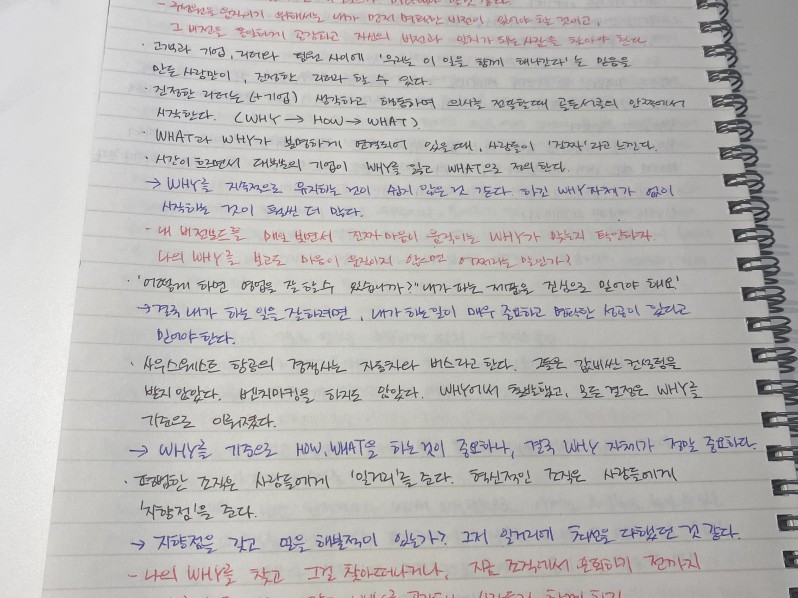 위해서는 내가 먼저 명확한 비전이 있어야 할 것이고,
그 비전을 공감하고 자신의 비전과 일치가 되는 사람을 찾아야 한다.
· 고객과 기업, 리더와 팀원 사이에 '우리는 이 일을 함께 해나간다'는 믿음을
만든 사람만이, 진정한 리더라 할 수 있다.
· 진정한 리더는(+기업) 생각하고 행동하며 의사를 전달할때 골든서클의 안쪽에서
시작한다. (WHY → HOW → WHAT)
· WHAT과 WHY가 분명하게 연결되어 있을때, 사람들이 '진짜'라고 느낀다.
· 시간이 흐르면서 대부분의 기업이 WHY를 잃고 WHAT으로 경쟁한다.
→ WHY를 지속적으로 유지하는 것이 쉽지 않은것 같다. 하긴 WHY자체가 없이
시작하는 것이 훨씬 더 많다.
- 내 비전보드를 매일 보면서 진짜 마음이 움직이는 WHY가 맞는지 확인하자.
나의 WHY를 보고도 마음이 움직이지 않으면 어쩌라는 말인가?
· '어떻게 하면 영업을 잘할수 있습니까?' '내가 파는 제품을 진심으로 믿어야 해요'
→ 결국 내가 하는 일을 잘하려면, 내가 하는일이 매우 중요하고 명확한 성공이 있다고
믿어야 한다.
· 사우스웨스트 항공의 경쟁사는 자동차와 버스라고 한다. 그들은 값비싼 컨설팅을
받지 않았다. 벤치마킹을 하지도 않았다. WHY에서 출발했고, 모든 결정은 WHY를
기준으로 이뤄졌다.
→ WHY를 기준으로 HOW, WHAT을 하는것이 중요하나, 결국 WHY 자체가 정말 중요하다.
· 평범한 조직은 사람들에게 '일거리'를 준다. 혁신적인 조직은 사람들에게
'지향점'을 준다.
→ 지향점을 갖고 일을 해본적이 있는가? 그저 일거리에 최선을 다했던 것 같다.
- 나의 WHY를 찾고 그걸 찾아떠나거나, 지금 조직에서 전까지